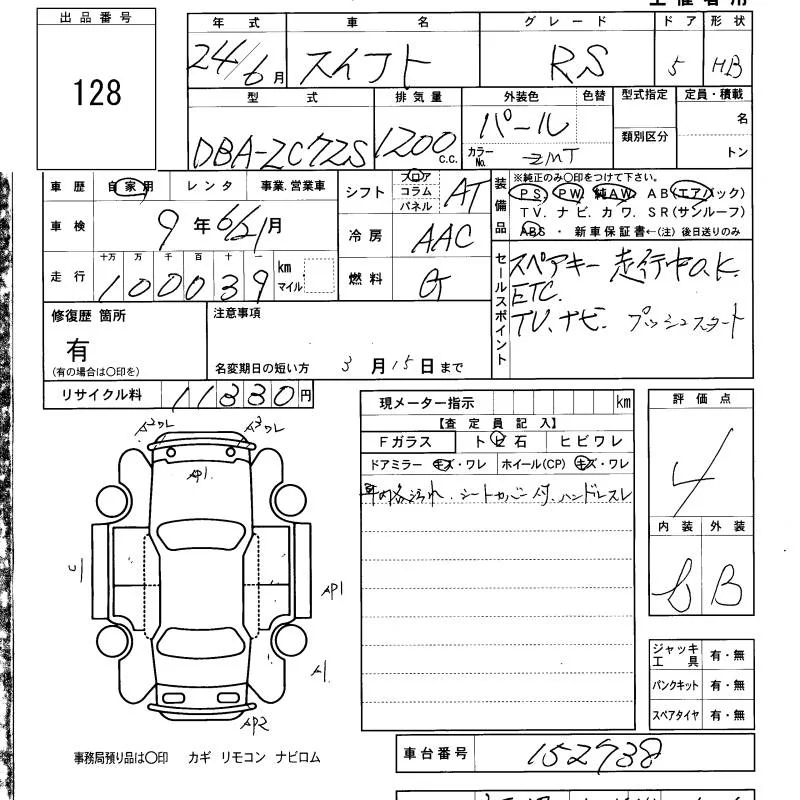 出品番号
128
年式 車名 グレード ドア 形状
24/6月 スイフト RS 5 HB
型式 排気量 外装色 色替 型式指定 定員・積載
DBA-ZC72S 1200 c.c. パール 名
カラーNo. ZMT 類別区分 トン
車歴 自家用 レンタ 事業.営業車
車検 9年6/21月
走行 十万 万 千 百 十 一
100039 km マイル
シフト フロア コラム パネル AT
冷房 AAC
燃料 G
装備品 ※純正のみ○印をつけて下さい。
PS. PW. 純AW. AB(エアバック)
TV. ナビ. カワ. SR(サンルーフ)
ABS ・ 新車保証書←(注) 後日送りのみ
セールスポイント
スペアキー 走行中O.K.
ETC.
TV.ナビ. プッシュスタート
修復歴 箇所
有
(有の場合は○印を)
注意事項
名変期日の短い方 3月15日まで
リサイクル料 11330円
現メーター指示 km
【査定員記入】
Fガラス トビ石 ヒビワレ
ドアミラー キズ・ワレ ホイール(CP) キズ・ワレ
シートカバー付.ハンドルスレ
評価点
4
内装 外装
b B
A2ワレ A2ワレ
AP1
U
AP1
A1
AP2
ジャッキ工具 有・無
パンクキット 有・無
スペアタイヤ 有・無
事務局預り品は○印 カギ リモコン ナビロム
車台番号 152738